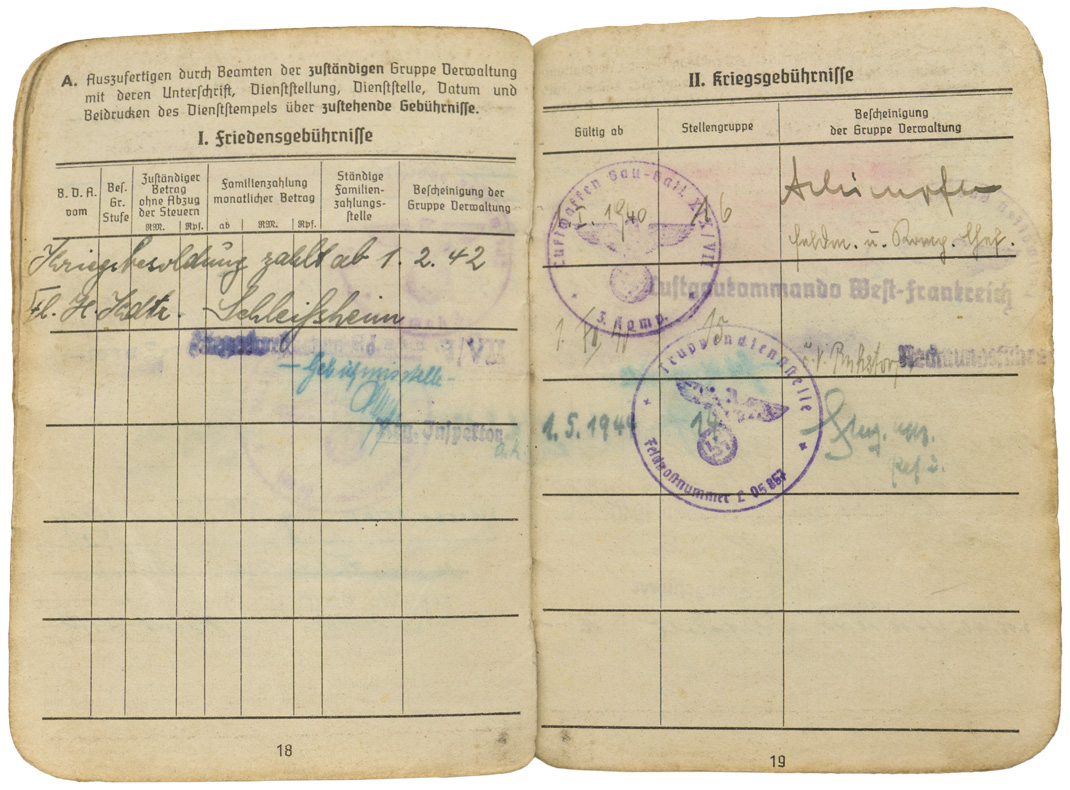 A. Auszufertigen durch Beamten der zuständigen Gruppe Verwaltung
mit deren Unterschrift, Dienststellung, Dienststelle, Datum und
Beidrucken des Dienststempels über zustehende Gebührnisse.
I. Friedensgebührnisse
B. D. A.
vom
Bes.
Gr.
Stufe
Zuständiger
Betrag
ohne Abzug
der Steuern
RM. Rpf.
Familienzahlung
monatlicher Betrag
ab RM. Rpf.
Ständige
Familien-
zahlungs-
stelle
Bescheinigung der
Gruppe Verwaltung
Kriegsbesoldung zahlt ab 1. 2. 42
Fl. H. Kdtr. Schleißheim
Inspektor
18
II. Kriegsgebührnisse
Gültig ab
Stellengruppe
Bescheinigung
der Gruppe Verwaltung
Luftwaffen Bau-Batl.
1940
16
u. Komp. Chef.
3. Komp.
Luftgaukommando West-Frankreich
Rechnungsführer
Truppendienststelle
1. 5. 194
14
Feldpostnummer L 05867
19